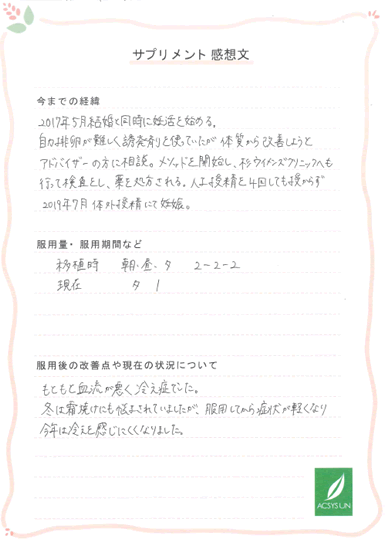 サプリメント 感想文
今までの経緯
2017年5月結婚と同時に妊活を始める。
自力排卵が難しく誘発剤を使っていたが 体質から改善しようと
アドバイザーの方に相談。メソッドを開始し、杉ウイメンズクリニックへも
行って検査をし、薬を処方される。人工授精を4回しても授からず
2019年7月 体外授精にて妊娠。
服用量・服用期間など
移植時 朝・昼・夕 2-2-2
現在 夕 1
服用後の改善点や現在の状況について
もともと血流が悪く冷え症でした。
冬は霜焼けにも悩まされていましたが、服用してから症状が軽くなり
今年は冷えを感じにくくなりました。
ACSYSUN